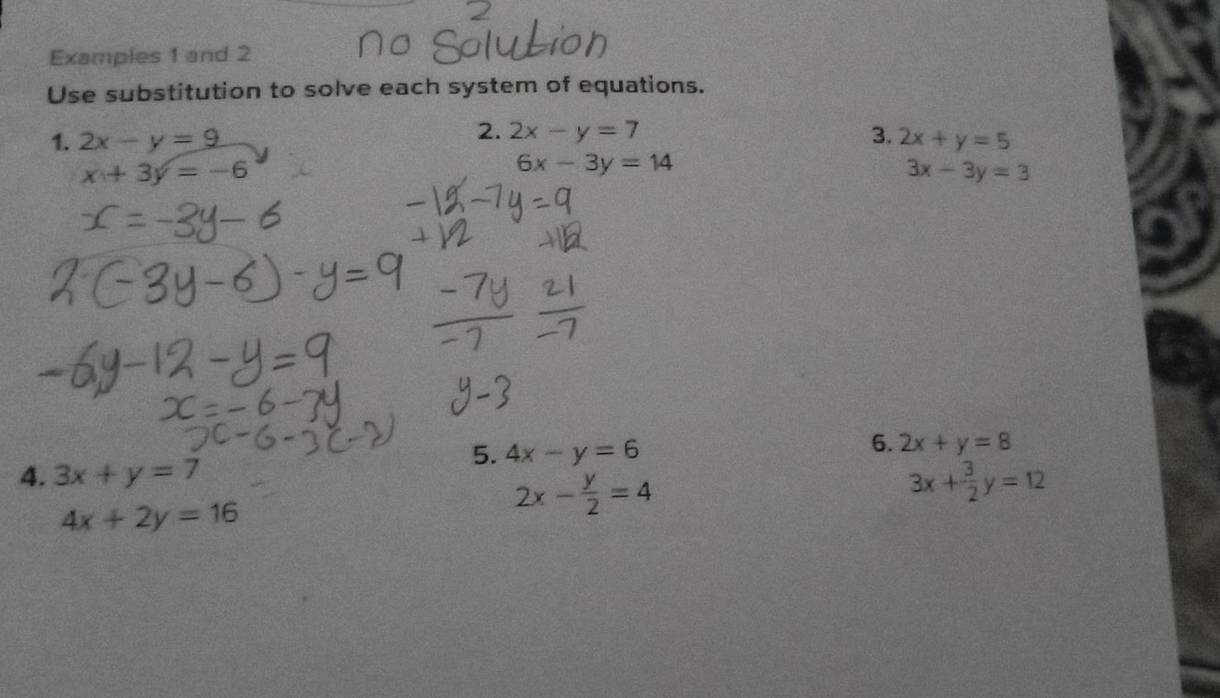 2
no solution
Examples 1 and 2
Use substitution to solve each system of equations.
1. 2x − y = 9
x + 3y = −6
x = -3y - 6
2·(-3y-6) - y = 9
-6y - 12 - y = 9
x = -6 - 3y
x - 6 - 3(-3)
2. 2x − y = 7
6x − 3y = 14
-12 - 7y = 9
+12 +12
-7y 21
-7 -7
y - 3
3. 2x + y = 5
3x − 3y = 3
4. 3x + y = 7
4x + 2y = 16
5. 4x − y = 6
2x − y/2 = 4
6. 2x + y = 8
3x + 3/2 y = 12